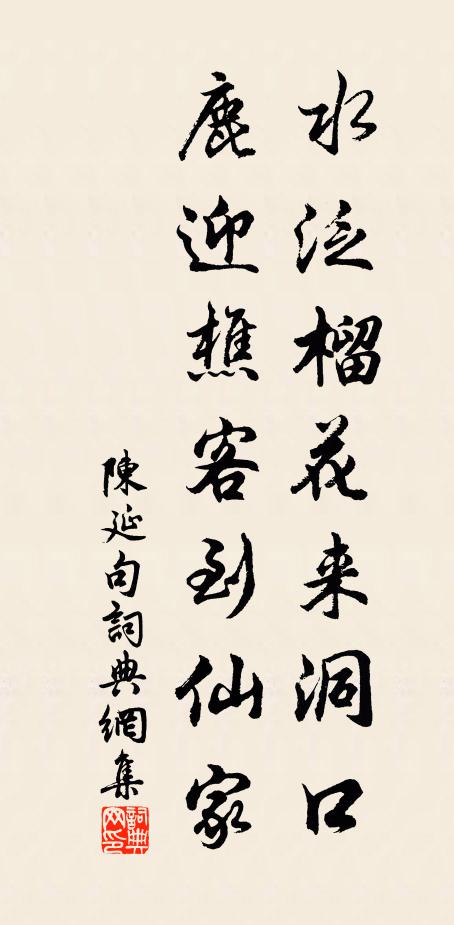 水泛榴花来洞口
鹿迎樵客到仙家
陳延句詞典網集
詞典网印